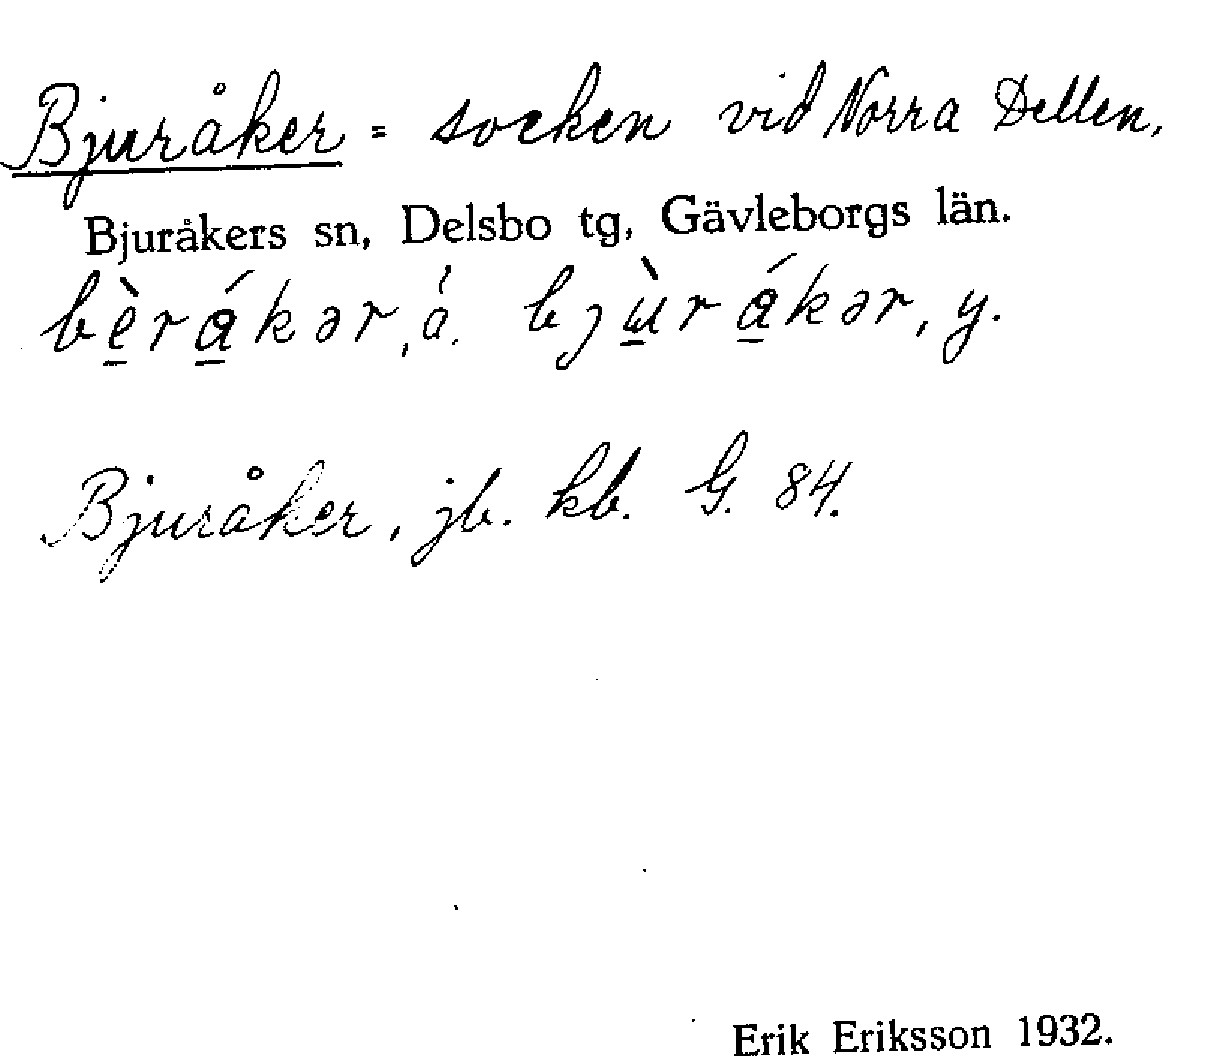 Bjuråker = socken vid Norra Dellen,
Bjuråkers sn, Delsbo tg, Gävleborgs län.
bè̱rá̱kər, á. bjù̱rá̱kər, y.
Bjuråker, jb. kb. G. 84.
Erik Eriksson 1932.